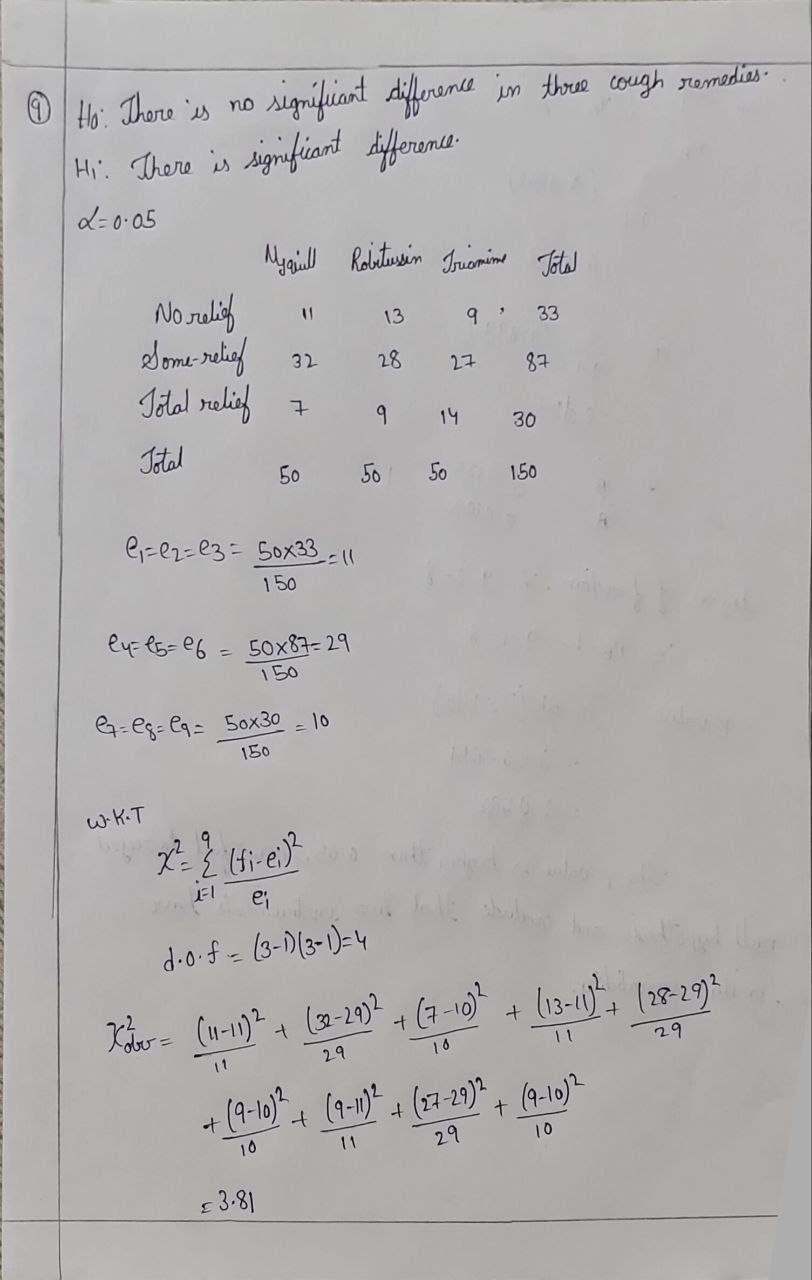 9 H₀: There is no significant difference in three cough remedies.
H₁: There is significant difference.
α=0.05
Nyquill Robitussin Triamime Total
No relief 11 13 9 33
Some-relief 32 28 27 87
Total relief 7 9 14 30
Total 50 50 50 150
e₁=e₂=e₃= 50×33/150 =11
e₄=e₅=e₆ = 50×87/150 =29
e₇=e₈=e₉= 50×30/150 =10
W.K.T
χ²= Σ⁹ᵢ₌₁ (fi-ei)²/ei
d.o.f = (3-1)(3-1)=4
χ²obv = (11-11)²/11 + (32-29)²/29 + (7-10)²/10 + (13-11)²/11 + (28-29)²/29
+ (9-10)²/10 + (9-11)²/11 + (27-29)²/29 + (9-10)²/10
= 3.81